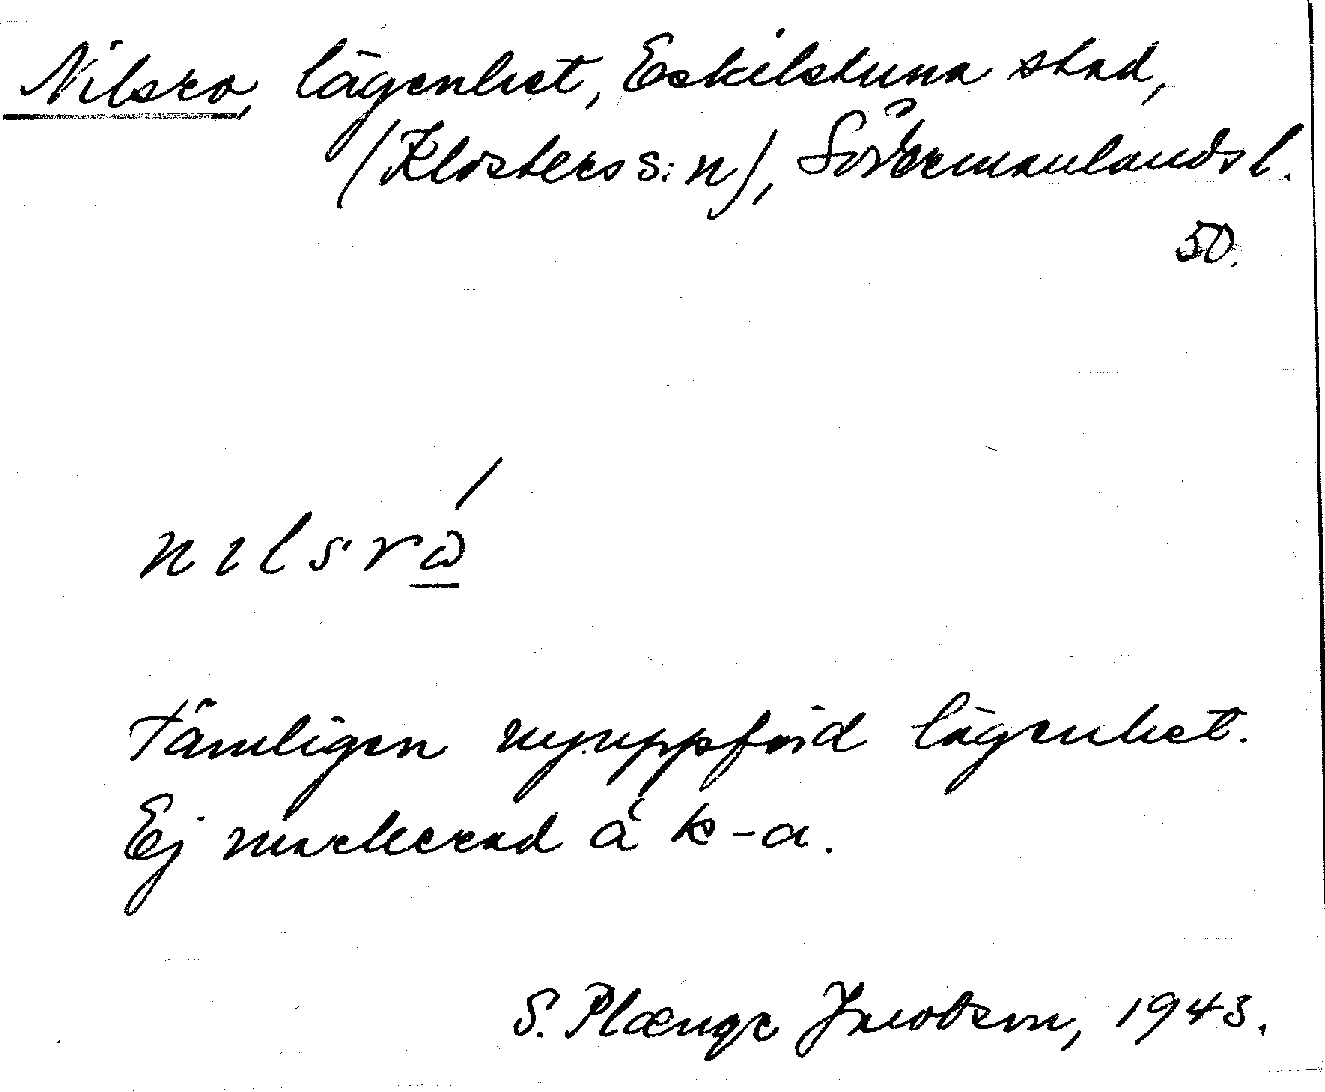 Nilsro, lägenhet, Eskilstuna stad,
(Klosters s:n), Södermanlands l.
50.
nilsrώ̲
Tämligen nyuppförd lägenhet.
Ej markerad å k-a.
S. Plænge Jacobson, 1943.